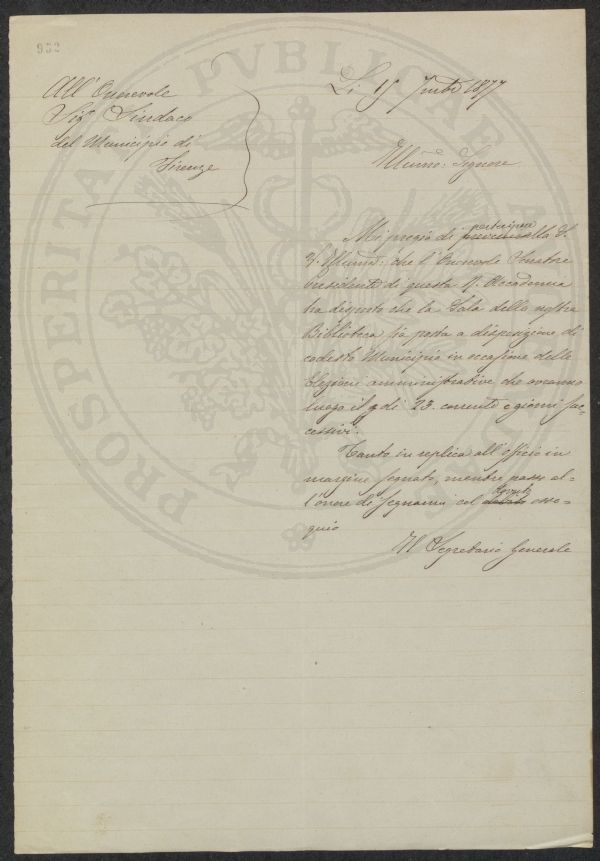 952
All' Onorevole
Sigr Sindaco
del Municipio di
Firenze
Li 15 1877
Illumo: Signore
partecipare
Mi pregio di alla S.
V. Illuma: che l'Onorevole Senatore
Presidente di questa R. Accademia
ha disposto che la Sala della nostra
Biblioteca sia posta a disposizione di
codesto Municipio in occasione delle
Elezioni amministrative che avranno
luogo il dì 23. corrente e giorni suc=
cessivi.
Tanto in replica all' officio in
margine segnato, mentre passo al=
l'onore di segnarmi col dovuto osse=
quio
Il Segretario Generale
PROSPERITATI PVBLICAE